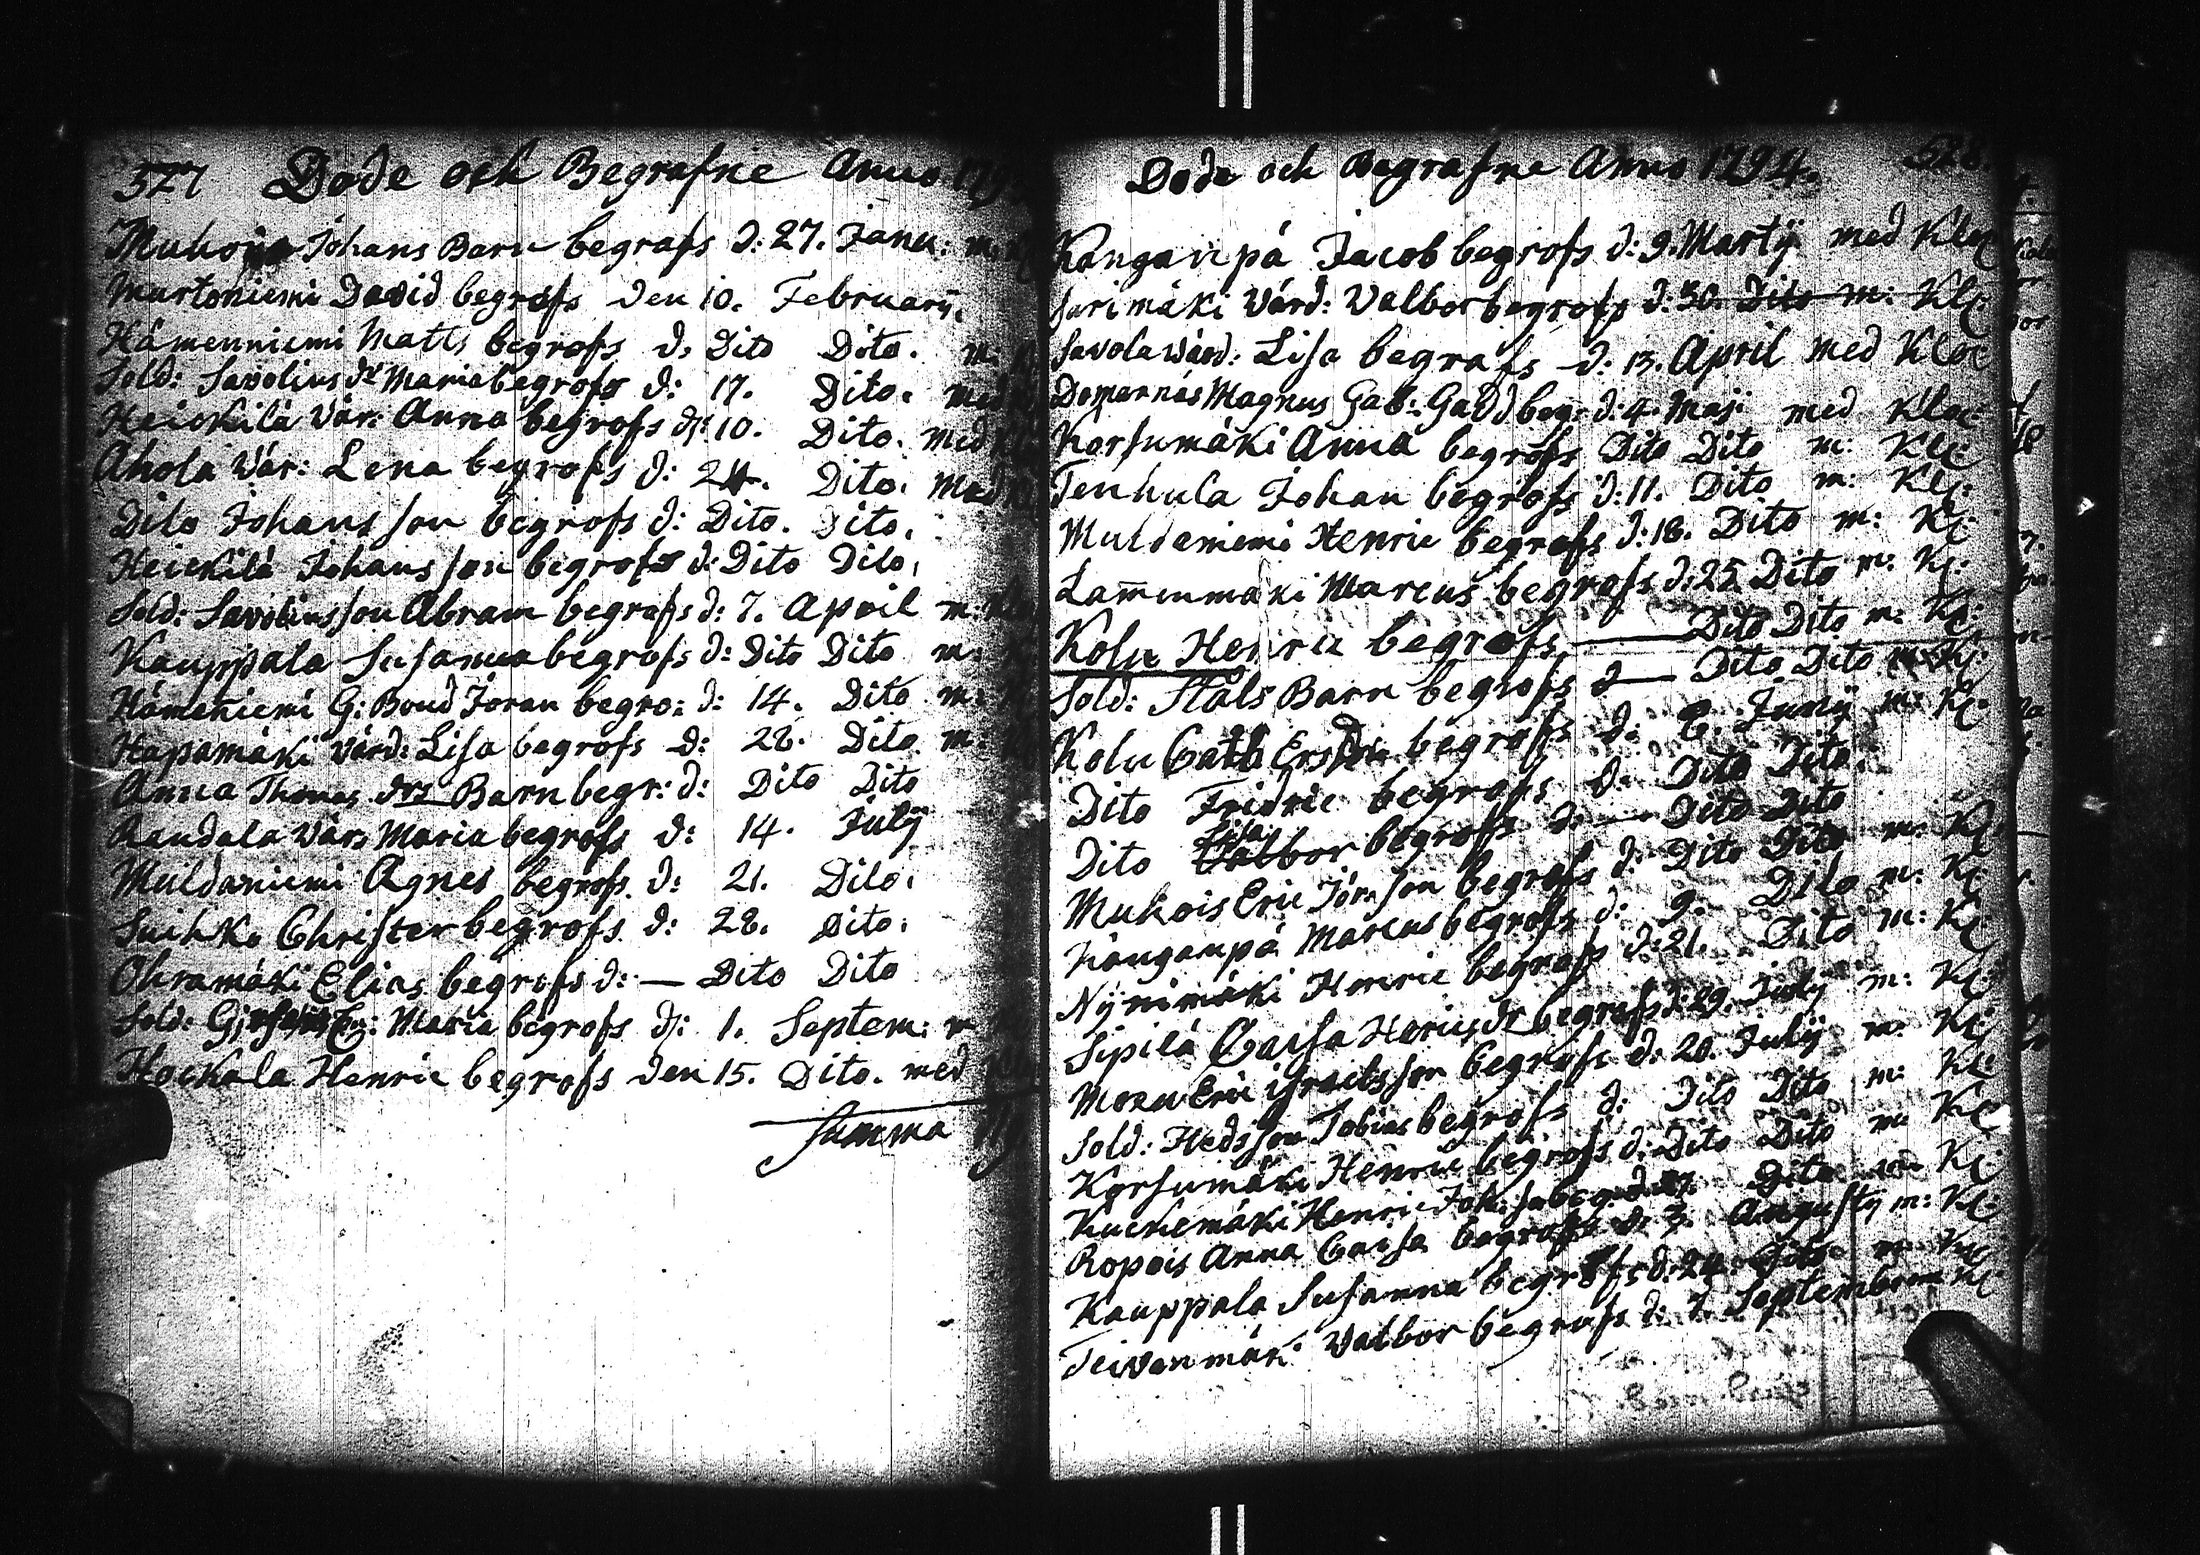 527 Döde och Begrafne Anno
Muhoja Johans Barn begrafs d: 27. Janu: m:
Murtoniemi David begrafs den 10. Februarij.
Hämenniemi Matts begrafs d: Dito Dito. m:
Sold: Savolius dr Maria begrofs d: 17. Dito. med
Heickilä Vär: Anna begrofs d: 10. Dito. med
Ahola Vär: Lena begrofs d: 24. Dito. med
Dito Johans son begrofs d: Dito. Dito.
Heickilä Johans son begrofs d: Dito Dito,
Sold: Savolius son Abram begrafs d: 7. April m:
Kauppala Susanna begrofs d: Dito Dito m:
Hämeniemi G: Bond Jöran begro: d: 14. Dito m:
Hapamäki Värd: Lisa begrofs d: 28. Dito m:
Anna Thomas drs Barn begr: d: Dito Dito
Raudala Vär: Maria begrofs d: 14. Julij
Muldaniemi Agnes begrofs d: 21. Dito.
Suihko Christer begrofs d: 28. Dito.
Ohramäki Elias begrofs d: — Dito Dito
Sold: Maria begrofs d: 1. Septem:
Hockala Henric begrofs den 15. Dito. med
Summa
Döde och Begrafne Anno 1794. 528
Kanganpä Jacob begrofs d: 9. Martij med Kloc
Surimäki Värd: Valbor begrofs d: 30. Dito m: Kl:
Savola Värd: Lisa begrafs d: 13. April med Kloc
Domarnäs Magnus Gab: Gadd begr: d: 4. Maji med Kloc:
Korsumäki Anna begrofs Dito Dito m: Kl:
Tenhula Johan begrofs d: 11. Dito m: Kl:
Muldaniemi Henric begrofs d: 18. Dito m: Kl:
Lam̄inmäki Marcus begrofs d: 25 Dito m: Kl:
Kolu Henric begrofs — Dito Dito m: Kl:
Sold: Ståls Barn begrofs d — Dito Dito m: Kl:
Kolu Cath Ersdr begrofs d: Junij m: Kl:
Dito Fridric begrofs d: Dito Dito.
Dito Lisa begrofs d: — Dito Dito
Mukois Eric Jör: son begrofs d: Dito Dito m: Kl:
Kanganpä Marcus begrofs d: 9. Dito m: Kl:
Nynimäki Henric begrofs d: 21. Dito m: Kl:
Sipilä Caisa Henricsdr begrofs d: 29. Julij m: Kl:
Eric Israelsson begrofs d: 20. Julij m: Kl:
Sold: Heds son Tobias begrofs d: Dito Dito m: Kl:
Korsumäki Henric begrofs d: Dito Dito m: Kl:
Henric Joh: d: 27. Dito m: Kl:
Ropois Anna Caisa begrofs d: 3. Augusty m: Kl:
Kauppala Susanna begrofs d: 24. Dito m: Kl:
Teivanmäki Valbor begrofs d: 7. September m: Kl: